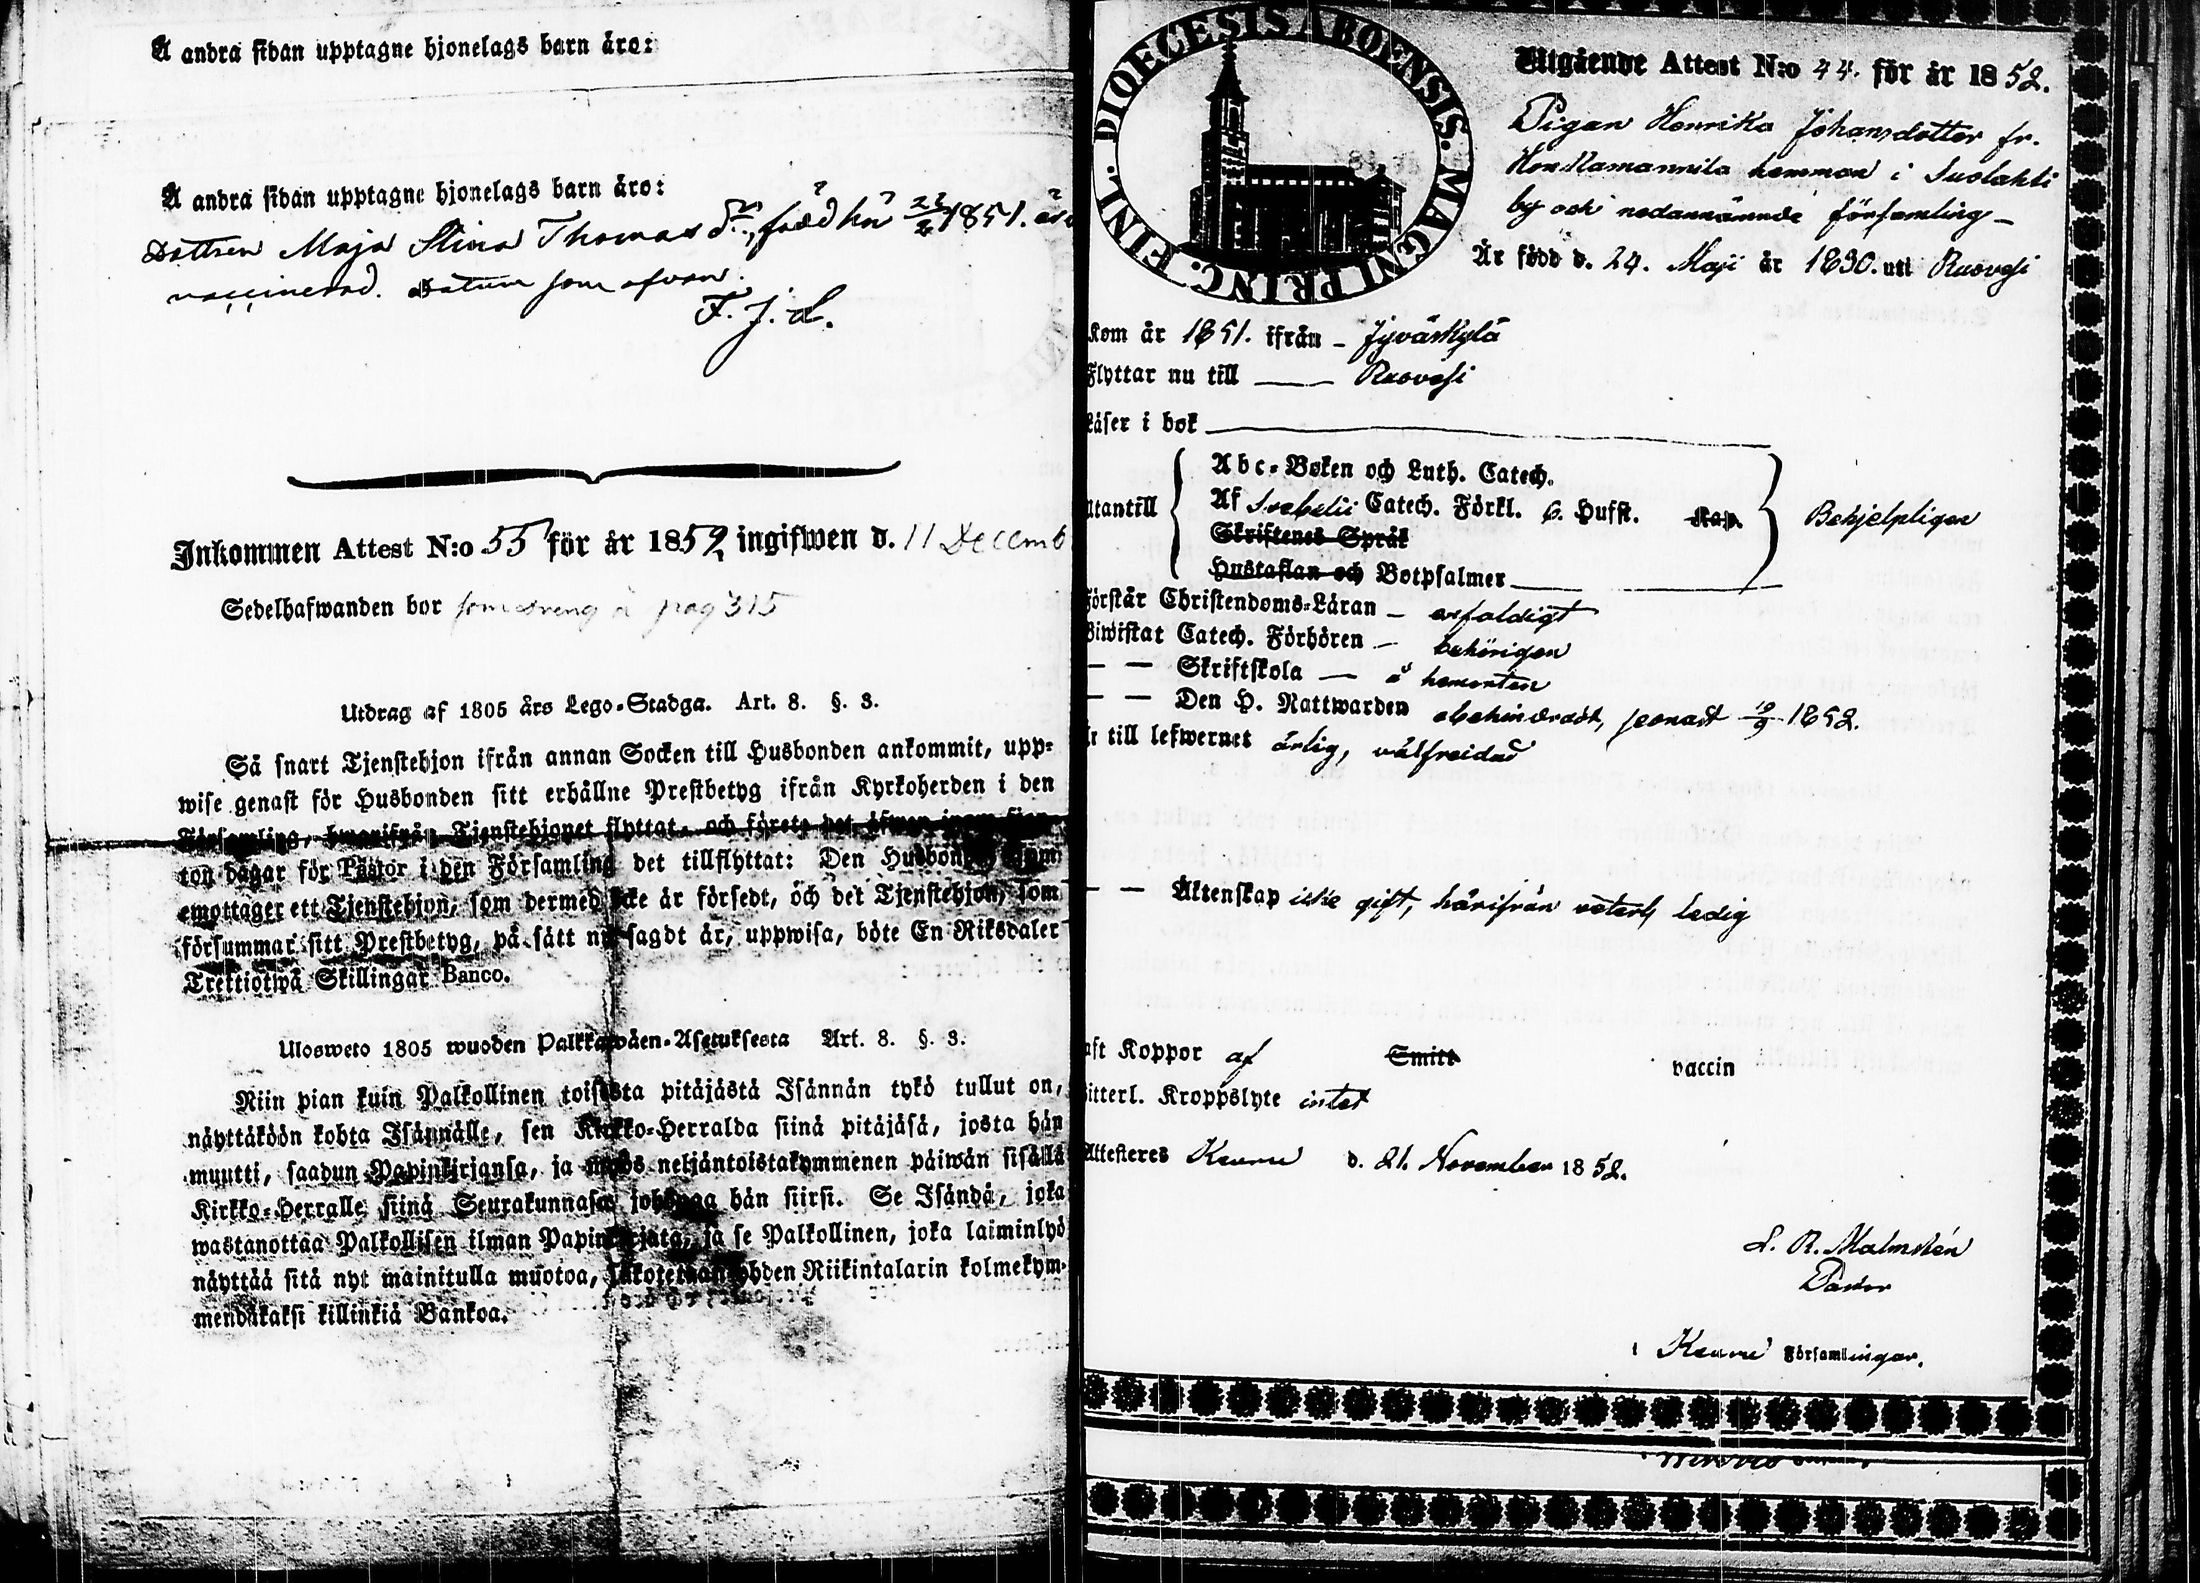 Å andra sidan upptagne hjonelags barn äro:
Å andra sidan upptagne hjonelags barn äro:
Dottren Maja Stina Thomas dr, född här 1851. är
vaccinerad. Datum som ofvan.
F. J. L.
Inkommen Attest N:o 55 för år 1852 ingifwen d. 11 Decemb
Sedelhafwanden bor som dreng å pag 315
Utdrag af 1805 års Lego-Stadga. Art. 8. §. 3.
Så snart Tjenstehjon ifrån annan Socken till Husbonden ankommit, upp-
wise genast för Husbonden sitt erhållne Prestbetyg ifrån Kyrkoherden i den
Församling, hwarifrån Tjenstehjonet flyttat, och förete det äfwen inom fjor-
ton dagar för Pastor i den Församling det tillflyttat: Den Husbonde, som
emottager ett Tjenstehjon, som dermed icke är försedt, och det Tjenstehjon, som
försummar sitt Prestbetyg, på sätt nu sagdt är, uppwisa, böte En Riksdaler
Trettiotwå Skillingar Banco.
Ulosweto 1805 wuoden Palkkawäen-Asetuksesta Art. 8. §. 3.
Niin pian kuin Palkollinen toisesta pitäjästä Isännän tykö tullut on,
näyttäköön kohta Isännälle, sen Kirkko-Herralda siinä pitäjäsä, josta hän
muutti, saadun Papinkirjansa, ja myös neljäntoistakymmenen päiwän sisällä
Kirkko-Herralle siinä Seurakunnasa, johonga hän siirsi. Se Isändä, joka
wastanottaa Palkollisen ilman Papinkirjata, ja se Palkollinen, joka laiminlyö
näyttää sitä nyt mainitulla muotoa, sakoitetaan yhden Riikintalarin kolmekym-
mendäkaksi killinkiä Bankoa.
DIOECESIS ABOENSIS. MAGNI PRINC. FINL.
Utgående Attest N:o 44. för år 1852.
Pigan Henrika Johansdotter fr.
hemman i Suolahti
by och nedannämnde församling
Är född d. 24. Maji år 1830. uti Ruovesi
Kom år 1851. ifrån – Jyväskylä
Flyttar nu till — Ruovesi
Läser i bok
Abc-Boken och Luth. Catech.
Utantill Af Svebelii Catech. Förkl. 6. Hufst. Kap. Behjelpligen
Skriftenes Språk
Hustaflan och Botpsalmer
Förstår Christendoms-Läran – enfaldigt
Biwistat Catech. Förhören – behörigen
— — Skriftskola — å hemorten
— — Den H. Nattwarden obehindradt, senast 19/9 1852.
Är till lefwernet ärlig, välfrejdad
— — Äktenskap icke gift, härifrån veterl. ledig
aft Koppor af Smitt vaccin
itterl. Kroppslyte intet
Attesteras Keuru d. 21. November 1852.
L. R. Malmstén
Pastor
i Keuru Församlingar.